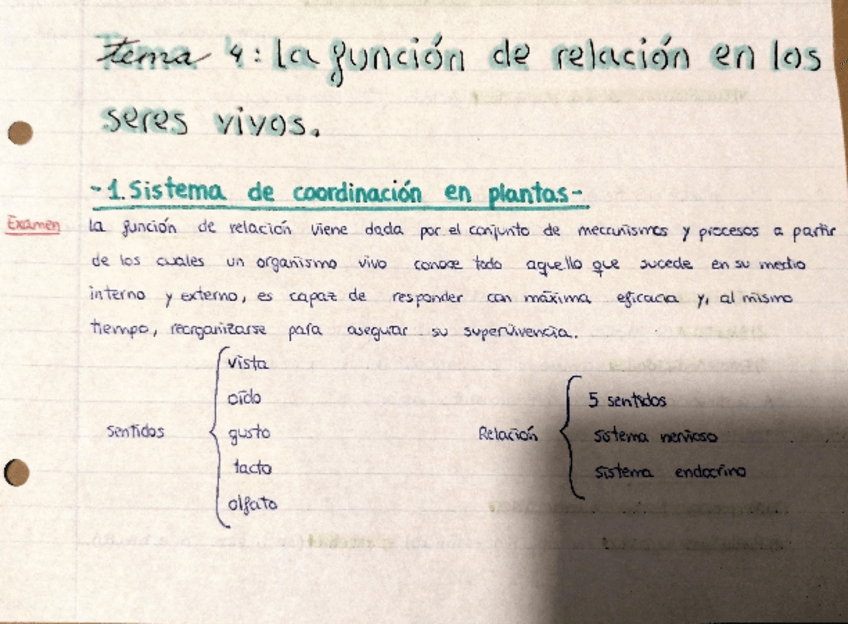 Tema 4: La función de relación en los
seres vivos.
-1. Sistema de coordinación en plantas-
Examen
La función de relación viene dada por el conjunto de mecanismos y procesos a partir
de los cuales un organismo vivo conoce todo aquello que sucede en su medio
interno y externo, es capaz de responder con máxima eficacia y, al mismo
tiempo, reorganizarse para asegurar su supervivencia.
Sentidos
vista
oído
gusto
tacto
olfato
Relación
5 sentidos
sistema nervioso
sistema endocrino